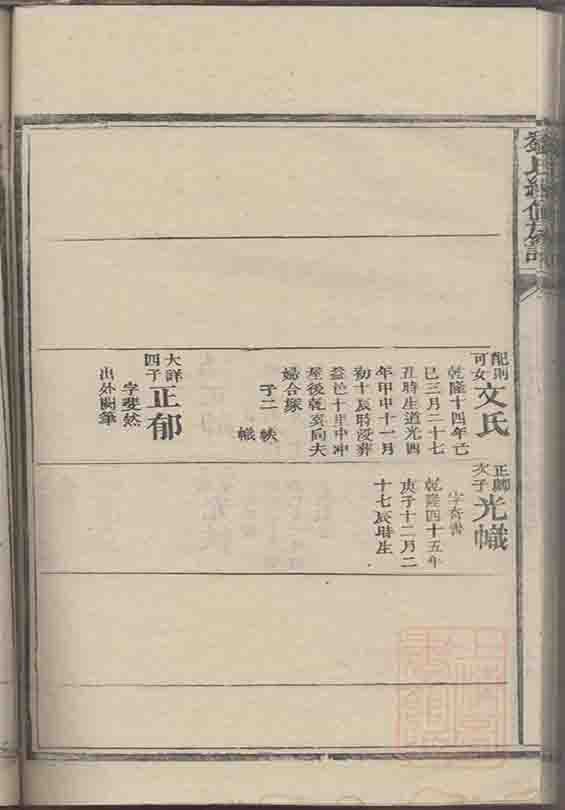 氏續修族譜
配則
可女
文氏
乾隆十四年亡
巳三月二十七
丑時生道光四
年甲申十一月
初十辰時沒葬
益邑十里中冲
屋後乾亥向夫
婦合塚
子二 帙
幟
大詳
四子
正郁
字斐然
出外闕筆
正卿
次子
光幟
字奇書
乾隆四十五年
庚子十二月二
十七辰時生